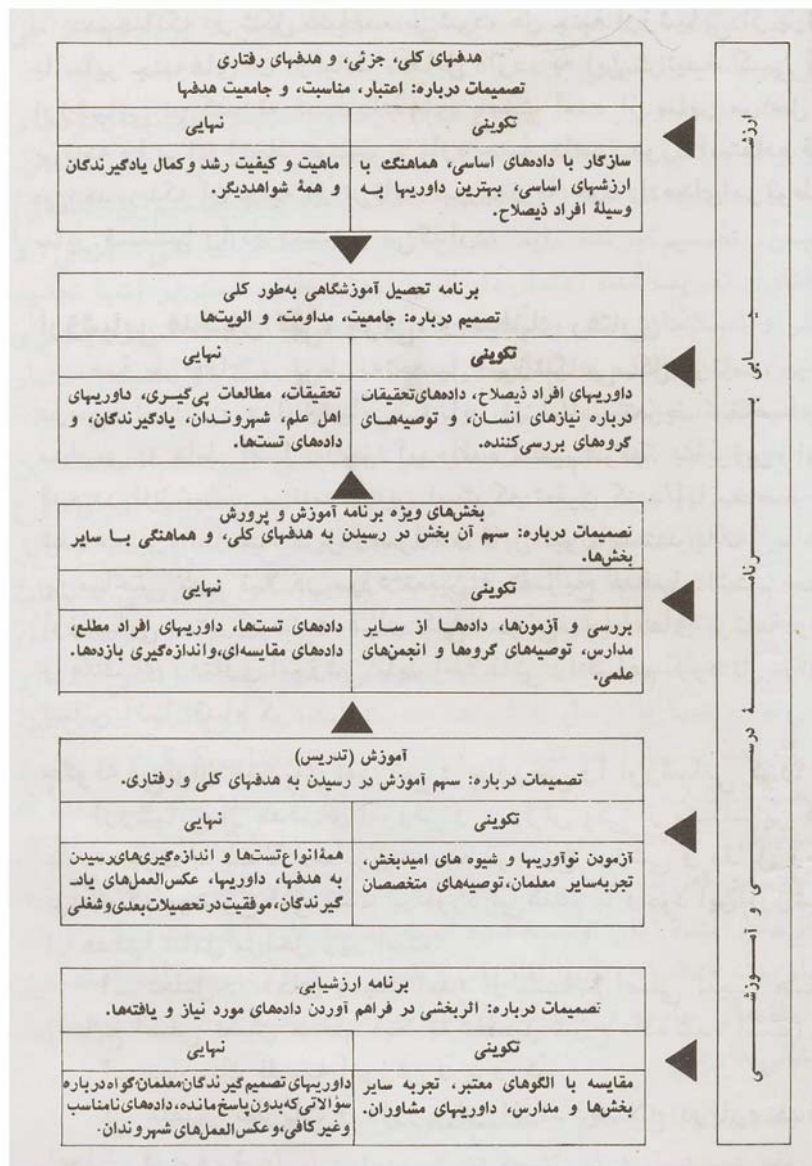 ارزشیابی برنامهٔ درسی و آموزشی
هدفهای کلی، جزئی، و هدفهای رفتاری
تصمیمات درباره: اعتبار، مناسبت، و جامعیت هدفها
تکوینی
سازگار با داده‌های اساسی، هماهنگ با
ارزشهای اساسی، بهترین داوریها به
وسیلهٔ افراد ذیصلاح.
نهایی
ماهیت و کیفیت رشد و کمال یادگیرندگان
و همهٔ شواهد دیگر.
برنامه تحصیل آموزشگاهی به‌طور کلی
تصمیم درباره: جامعیت، مداومت، و الویت‌ها
تکوینی
داوریهای افراد ذیصلاح، داده‌های تحقیقات
درباره نیازهای انسان، و توصیه‌های
گروه‌های بررسی‌کننده.
نهایی
تحقیقات، مطالعات پی‌گیری، داوریهای
اهل علم، شهروندان، یادگیرندگان، و
داده‌های تست‌ها.
بخش‌های ویژه برنامه آموزش و پرورش
تصمیمات درباره: سهم آن بخش در رسیدن به هدفهای کلی، و هماهنگی با سایر
بخش‌ها.
تکوینی
بررسی و آزمون‌ها، داده‌ها از سایر
مدارس، توصیه‌های گروه‌ها و انجمن‌های
علمی.
نهایی
داده‌های تست‌ها، داوریهای افراد مطلع،
داده‌های مقایسه‌ای، و اندازه‌گیری بازده‌ها.
آموزش (تدریس)
تصمیمات درباره: سهم آموزش در رسیدن به هدفهای کلی و رفتاری.
تکوینی
آزمودن نوآوریها و شیوه های امیدبخش،
تجربه سایر معلمان، توصیه‌های متخصصان
نهایی
همهٔ انواع تست‌ها و اندازه‌گیری‌های رسیدن
به هدفها، داوریها، عکس‌العمل‌های یاد-
گیرندگان، موفقیت در تحصیلات بعدی و شغلی
برنامه ارزشیابی.
تصمیمات درباره: اثربخشی در فراهم آوردن داده‌های مورد نیاز و یافته‌ها.
تکوینی
مقایسه با الگوهای معتبر، تجربه سایر
بخش‌ها و مدارس، داوریهای مشاوران.
نهایی
داوریهای تصمیم گیرندگان معلمان، گواه درباره
سؤالاتی که بدون پاسخ مانده، داده‌های نامناسب
و غیر کافی، و عکس‌العمل‌های شهروندان.